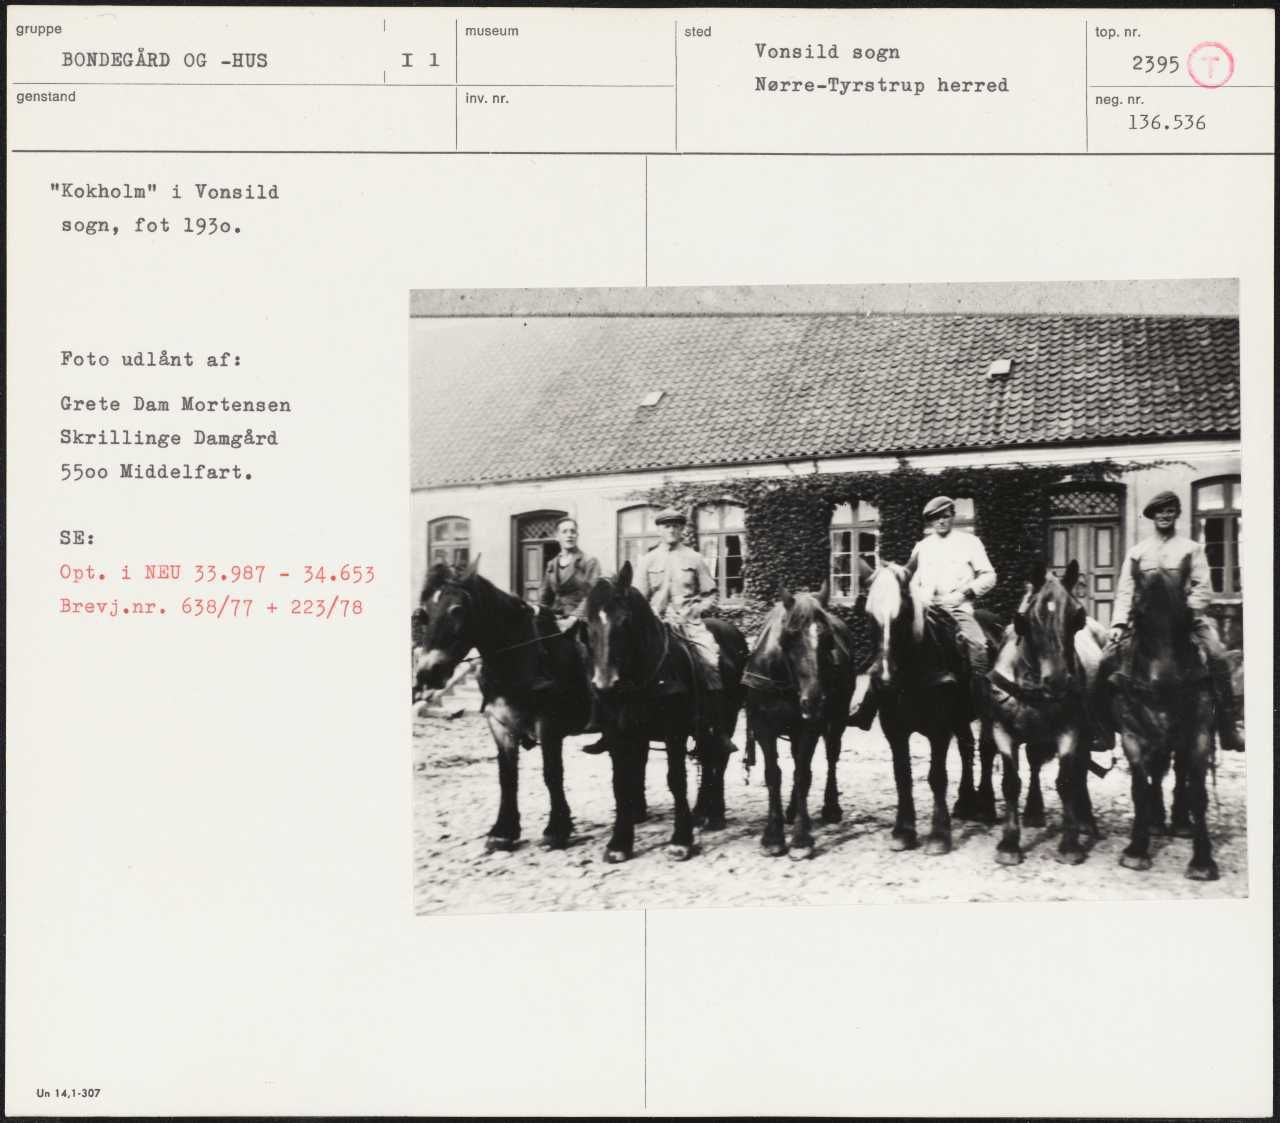 gruppe
BONDEGÅRD OG -HUS
I 1
museum
sted
Vonsild sogn
Nørre-Tyrstrup herred
top. nr.
2395 T
genstand
inv. nr.
neg. nr.
136.536
"Kokholm" i Vonsild
sogn, fot 193o.
Foto udlånt af:
Grete Dam Mortensen
Skrillinge Damgård
55oo Middelfart.
SE:
Opt. i NEU 33.987 - 34.653
Brevj.nr. 638/77 + 223/78
Un 14,1-307